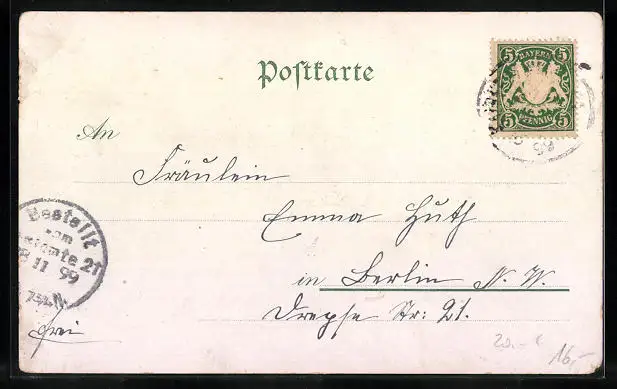 Postkarte
5 BAYERN 5
5 PFENNIG 5
99
An
Fräulein
Emma Huth
in Berlin N. W.
Dreyse Str: 21.
Bestellt
vom
Postamte 21
8 11 99
7½-8¼N.
frei
20.- €
16,-